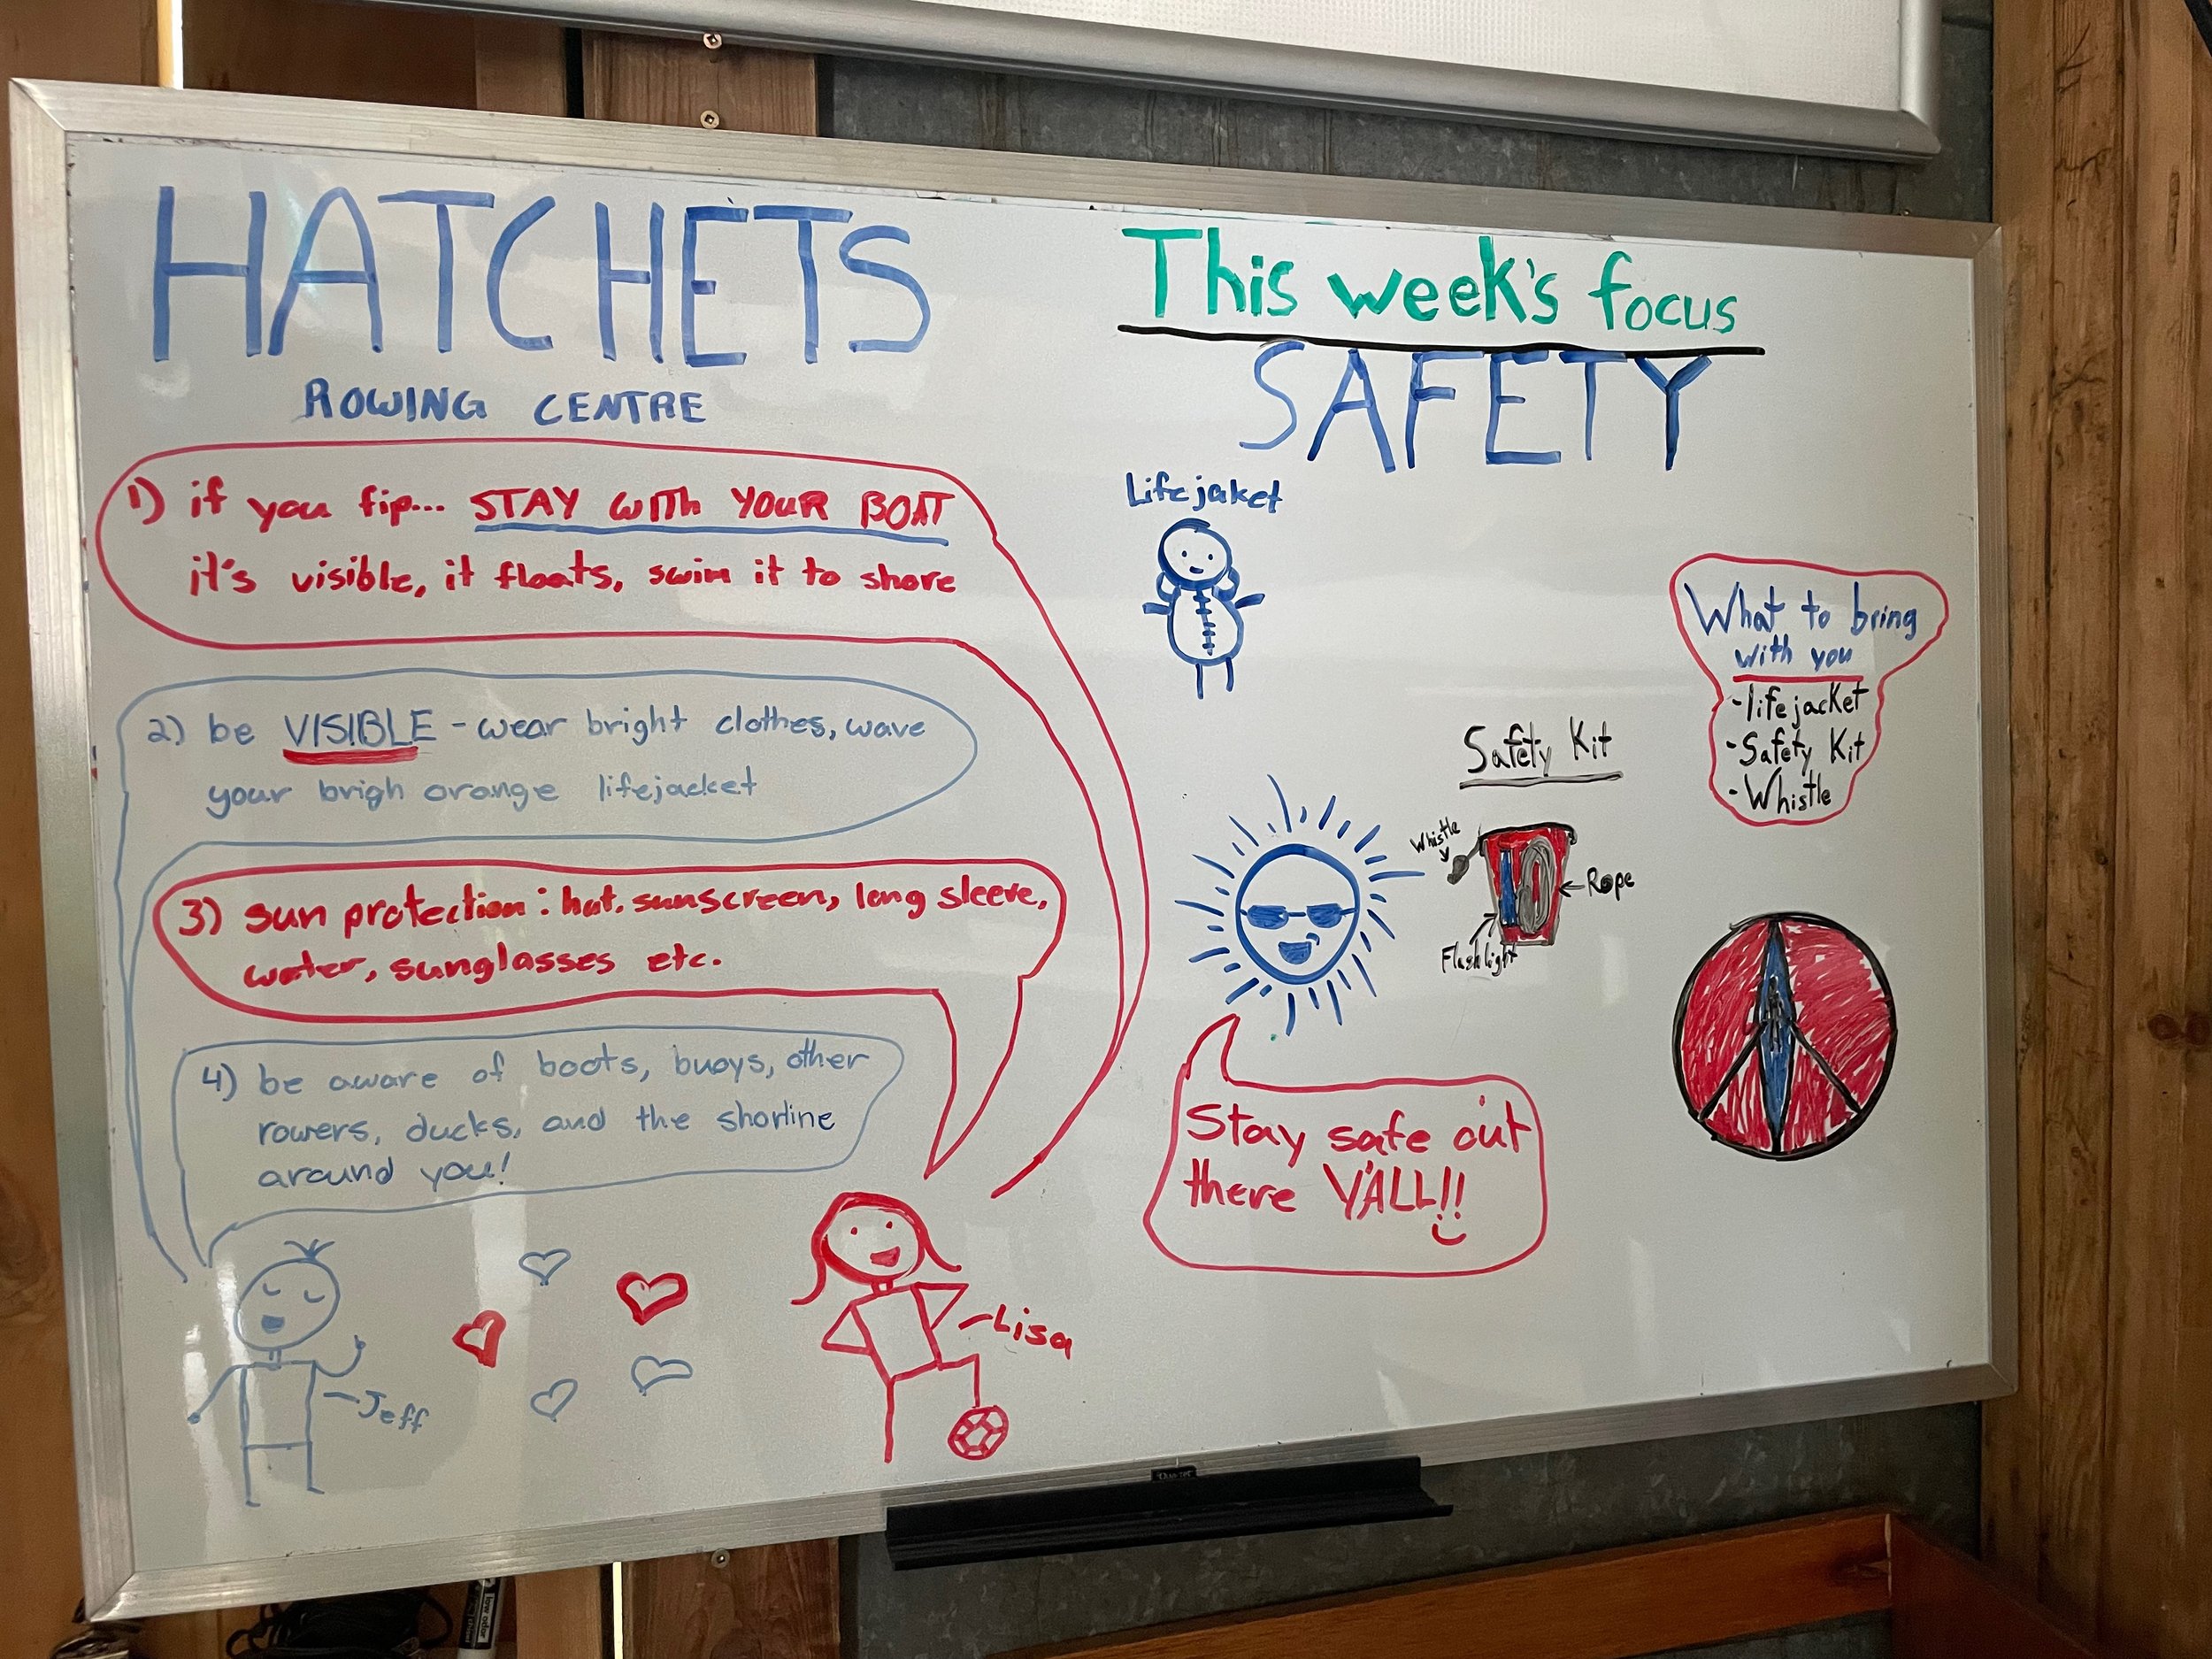 HATCHETS
ROWING CENTRE
1) if you fip... STAY WITH YOUR BOAT
it's visible, it floats, swim it to shore
2) be VISIBLE - wear bright clothes, wave
your brigh orange lifejacket
3) sun protection: hat, sunscreen, long sleeve,
water, sunglasses etc.
4) be aware of boats, buoys, other
rowers, ducks, and the shorline
around you!
Jeff
Lisa
This week's focus
SAFETY
Lifejaket
What to bring
with you
- lifejacket
- Safety Kit
- Whistle
Safety Kit
Whistle
Rope
Flashlight
Stay safe out
there Y'ALL!!